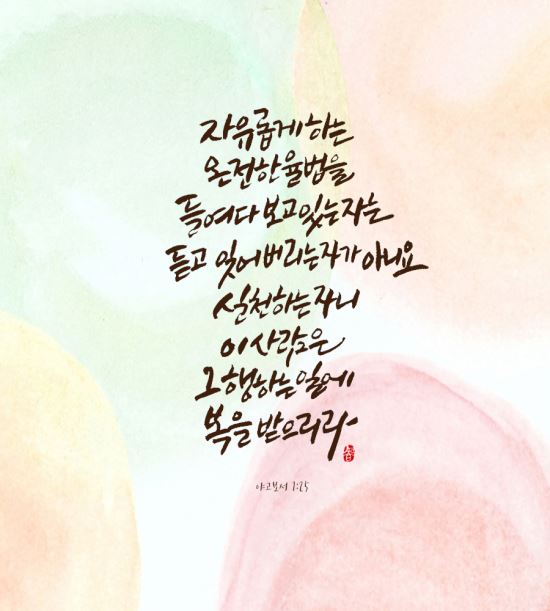 자유롭게 하는
온전한 율법을
들여다 보고 있는 자는
듣고 잊어버리는 자가 아니요
실천하는 자니
이 사람은
그 행하는 일에
복을 받으리라
야고보서 1:25